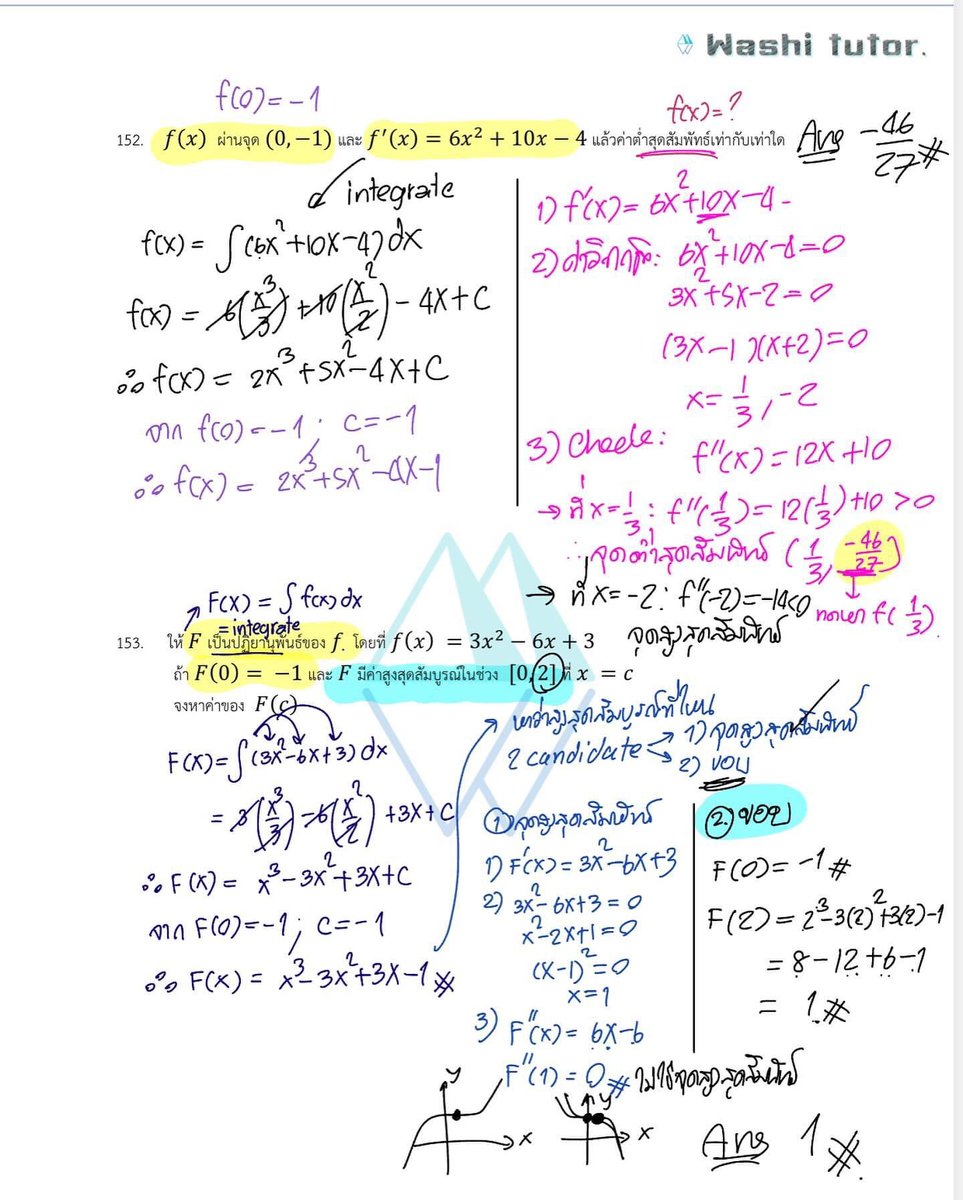 Washi tutor.
f(0) = -1
f(x) = ?
152. f(x) ผ่านจุด (0, −1) และ f′(x) = 6x² + 10x − 4 แล้วค่าต่ำสุดสัมพัทธ์เท่ากับเท่าใด
Ans -46/27 #
integrate
f(x) = ∫(6x²+10x-4)dx
f(x) = 6(x³/3) + 10(x²/2) - 4x + C
∴ f(x) = 2x³ + 5x² - 4x + C
จาก f(0) = -1 ; C = -1
∴ f(x) = 2x³ + 5x² - 4x - 1
1) f'(x) = 6x² + 10x - 4
2) ค่าวิกฤติ: 6x² + 10x - 4 = 0
3x² + 5x - 2 = 0
(3x - 1)(x + 2) = 0
x = 1/3, -2
3) Check: f''(x) = 12x + 10
→ ที่ x = 1/3 : f''(1/3) = 12(1/3) + 10 > 0
∴ จุดต่ำสุดสัมพัทธ์ (1/3, -46/27)
→ ที่ x = -2 : f''(-2) = -14 < 0
จุดสูงสุดสัมพัทธ์
f(1/3)
F(x) = ∫f(x)dx
= integrate
153. ให้ F เป็นปฏิยานุพันธ์ของ f. โดยที่ f(x) = 3x² − 6x + 3
ถ้า F(0) = −1 และ F มีค่าสูงสุดสัมบูรณ์ในช่วง [0, 2] ที่ x = c
จงหาค่าของ F(c)
F(x) = ∫(3x² - 6x + 3)dx
= 3(x³/3) - 6(x²/2) + 3x + C
∴ F(x) = x³ - 3x² + 3x + C
จาก F(0) = -1 ; C = -1
∴ F(x) = x³ - 3x² + 3x - 1 #
หาค่าสูงสุดสัมบูรณ์ที่ไหน
2 candidate
1) จุดสูงสุดสัมพัทธ์
2) ขอบ
① จุดสูงสุดสัมพัทธ์
1) F'(x) = 3x² - 6x + 3
2) 3x² - 6x + 3 = 0
x² - 2x + 1 = 0
(x - 1)² = 0
x = 1
3) F''(x) = 6x - 6
F''(1) = 0 # ไม่ใช่จุดสูงสุดสัมพัทธ์
y
x
y
x
②. ขอบ
F(0) = -1 #
F(2) = 2³ - 3(2)² + 3(2) - 1
= 8 - 12 + 6 - 1
= 1 #
Ans 1 #